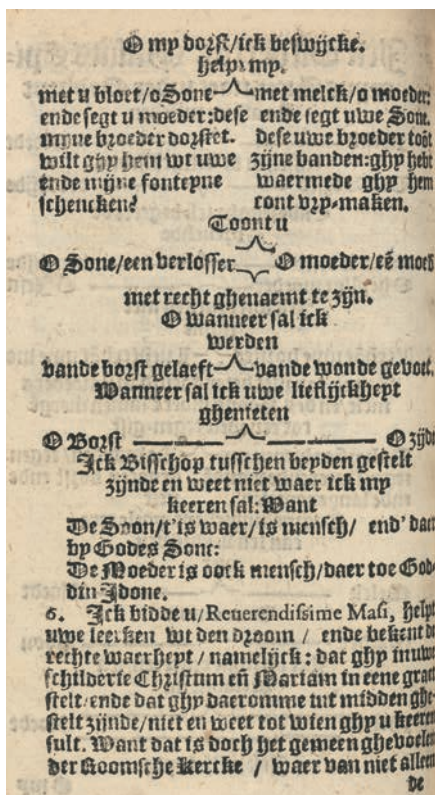 O my dorst/ick beswijcke.
help my.
met u bloet/o Sone met melck/o moeder:
ende segt u moeder:dese ende segt uwe Sone.
myne broeder dorstet. dese uwe broeder toōt
wilt ghy hem wt uwe zijne banden:ghy hebt
ende mijne fonteyne waermede ghy hem
schencken? cont vry-maken.
Toont u
O Sone/een verlosser O moeder/eē moed
met recht ghenaemt te zijn.
O wanneer sal ick
werden
vande borst gelaeft vande wonde gevoet.
Wanneer sal ick uwe lieflijckheyt
ghenieten
O Borst O zijdt
Ick Bisschop tusschen beyden gestelt
zijnde en weet niet waer ick my
keeren sal: Want
De Soon/t'is waer/is mensch/ end' daer
by Godes Sone:
De Moeder is oock mensch/daer toe God-
din Idone.
6. Ick bidde u/Reuerendissime Masi, helpt
uwe leecken wt den droom / ende bekent de
rechte waerheyt / namelijck: dat ghy in uwe
schilderie Christum eñ Mariam in eene graet
stelt/ende dat ghy daeromme int midden ghe-
stelt zijnde/niet en weet tot wien ghy u keeren
sult. Want dat is doch het gemeen ghevoelen
der Roomsche Kercke / waer van niet alleen
de